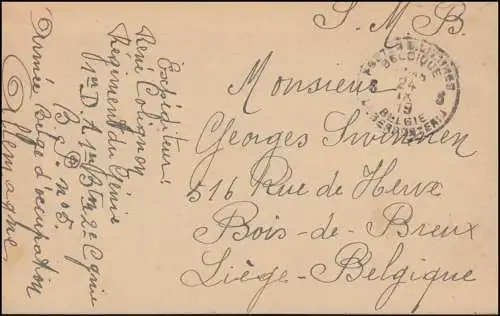 S. M. B.
Monsieur
Georges Swinnen
516 Rue de Herve
Bois-de-Breux
Liège-Belgique
Expéditeur:
René Colignon
Régiment du Génie
1re D A 1er Btn 2e Cgnie
B. P. no 5.
Armée belge d'occupation
Allemagne
BELGIQUE
24
19
BELGIE
5
5